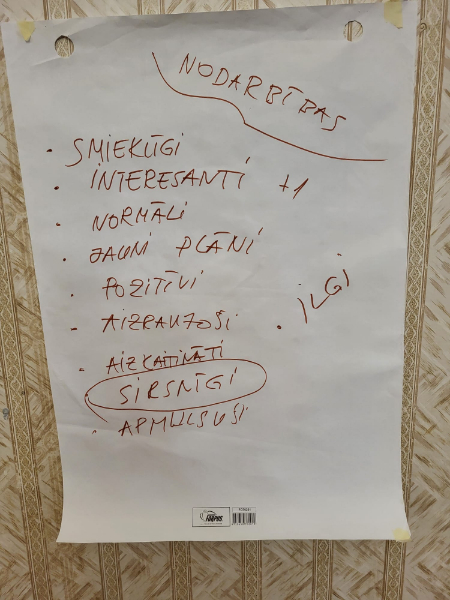 NODARBĪBAS
• SMIEKLĪGI
• INTERESANTI +1
• NORMĀLI
• JAUNI PLĀNI
• POZITĪVI
• AIZRAUJOŠI
• ILGI
• AIZKAITINĀTI
SIRSNĪGI
• APMULSUŠI
FORPUS